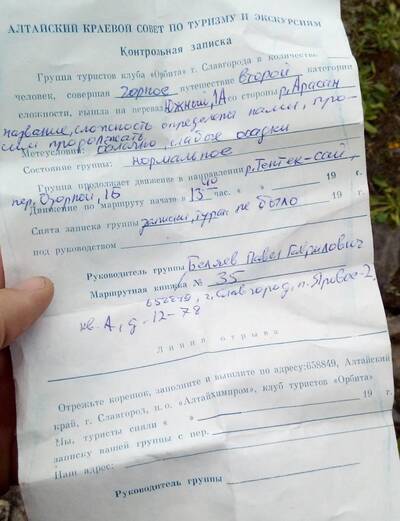 АЛТАЙСКИЙ КРАЕВОЙ СОВЕТ ПО ТУРИЗМУ И ЭКСКУРСИЯМ
Контрольная записка
Группа туристов клуба «Орбита» г. Славгорода в количестве
человек, совершая горное путешествие второй категории
сложности, вышла на перевал Южный, 1А со стороны р. Арасан
название, сложность определены нами, про-
сим продолжать
Метеоусловия: облачно, слабые осадки
Состояние группы: нормальное
Группа продолжает движение в направлении р. Тентек-сай,
пер. Озорной, 1Б 19 г.
Движение по маршруту начато в 13 40 час. « » 19 г.
Снята записка группы записки, турам не было
под руководством
Руководитель группы Беляев Павел Гаврилович
Маршрутная книжка № 35
г. Славгород, п. Яровое-2,
кв. А, д-12-78
Линия отрыва
Отрежьте корешок, заполните и вышлите по адресу: 658849, Алтайский
край, г. Славгород, п. о. «Алтайхимпром», клуб туристов «Орбита»
Мы, туристы сняли « » 19 г.
записку вашей группы с пер.
Наш адрес:
Руководитель группы